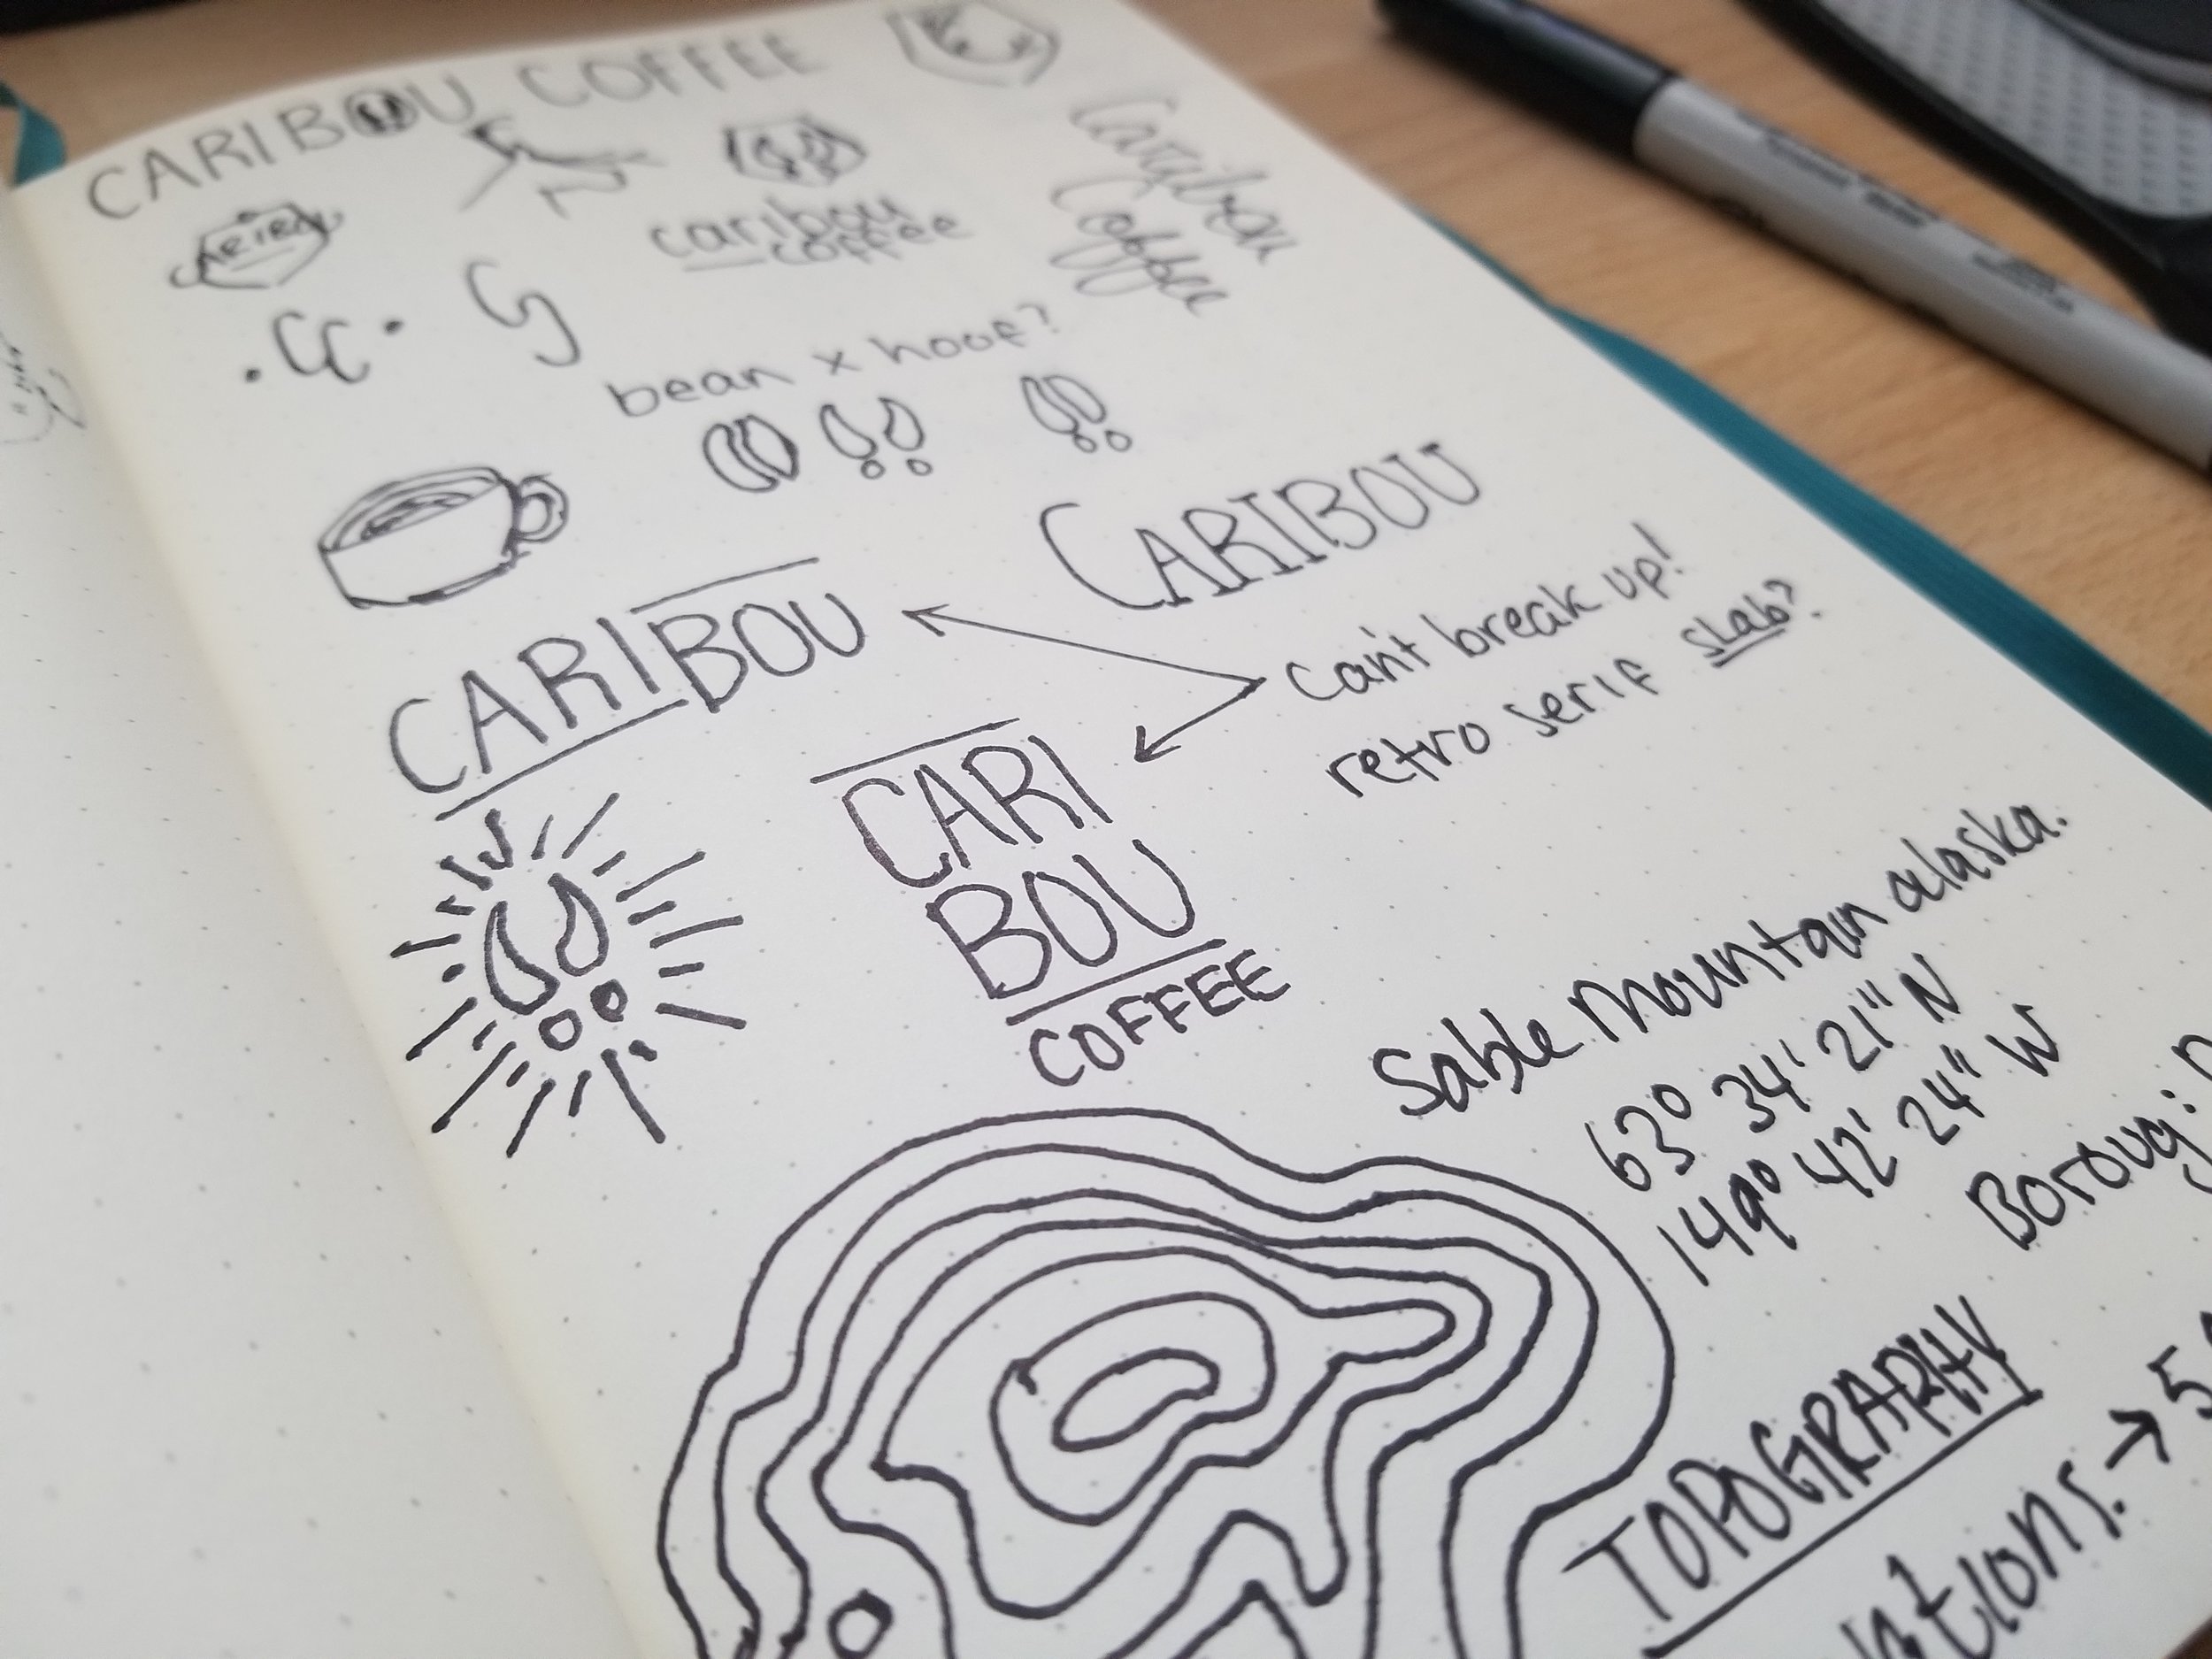 CARIBOU COFFEE
caribou
coffee
Caribou
Coffee
.CC.
bean x hoof?
CARIBOU
CARIBOU
Can't break up!
retro serif slab?
CARI
BOU
COFFEE
Sable Mountain alaska.
63° 34' 21" N
149° 42' 24" W
TOPOGRAPHY